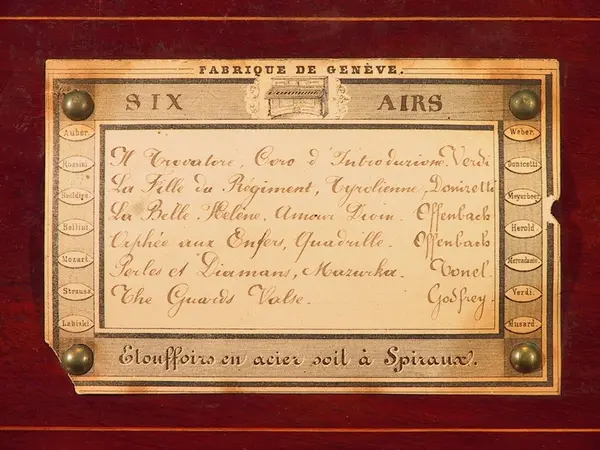 FABRIQUE DE GENÈVE.
SIX AIRS
Auber.
Rossini
Boieldieu
Bellini
Mozart.
Strauss
Labizki
Il Trovatore, Coro d'Introduzione. Verdi
La Fille du Régiment, Tyrolienne, Donizetti
La Belle Hélène, Amour Divin. Offenbach
Orphée aux Enfers, Quadrille. Offenbach
Perles et Diamans, Mazurka. Tonel.
The Guards Valse. Godfrey.
Weber.
Donicetti
Meyerbeer
Herold
Mercadante.
Verdi.
Musard.
Etouffoirs en acier soit à Spiraux.